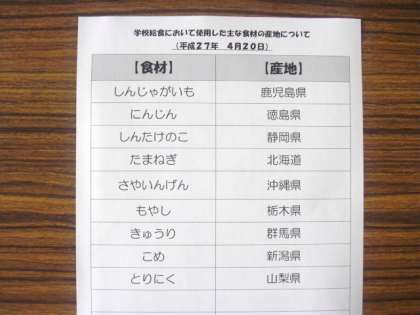 学校給食において使用した主な食材の産地について
（平成２７年　４月２０日）
【食材】 【産地】
しんじゃがいも 鹿児島県
にんじん 徳島県
しんたけのこ 静岡県
たまねぎ 北海道
さやいんげん 沖縄県
もやし 栃木県
きゅうり 群馬県
こめ 新潟県
とりにく 山梨県